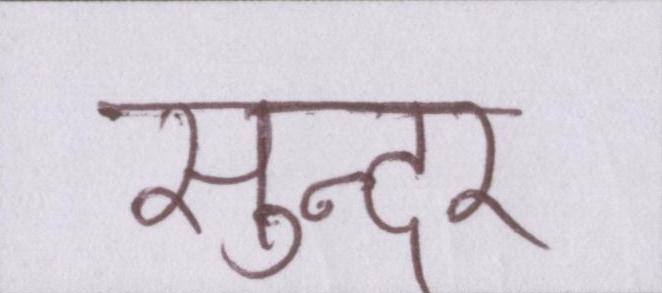 सुन्दर